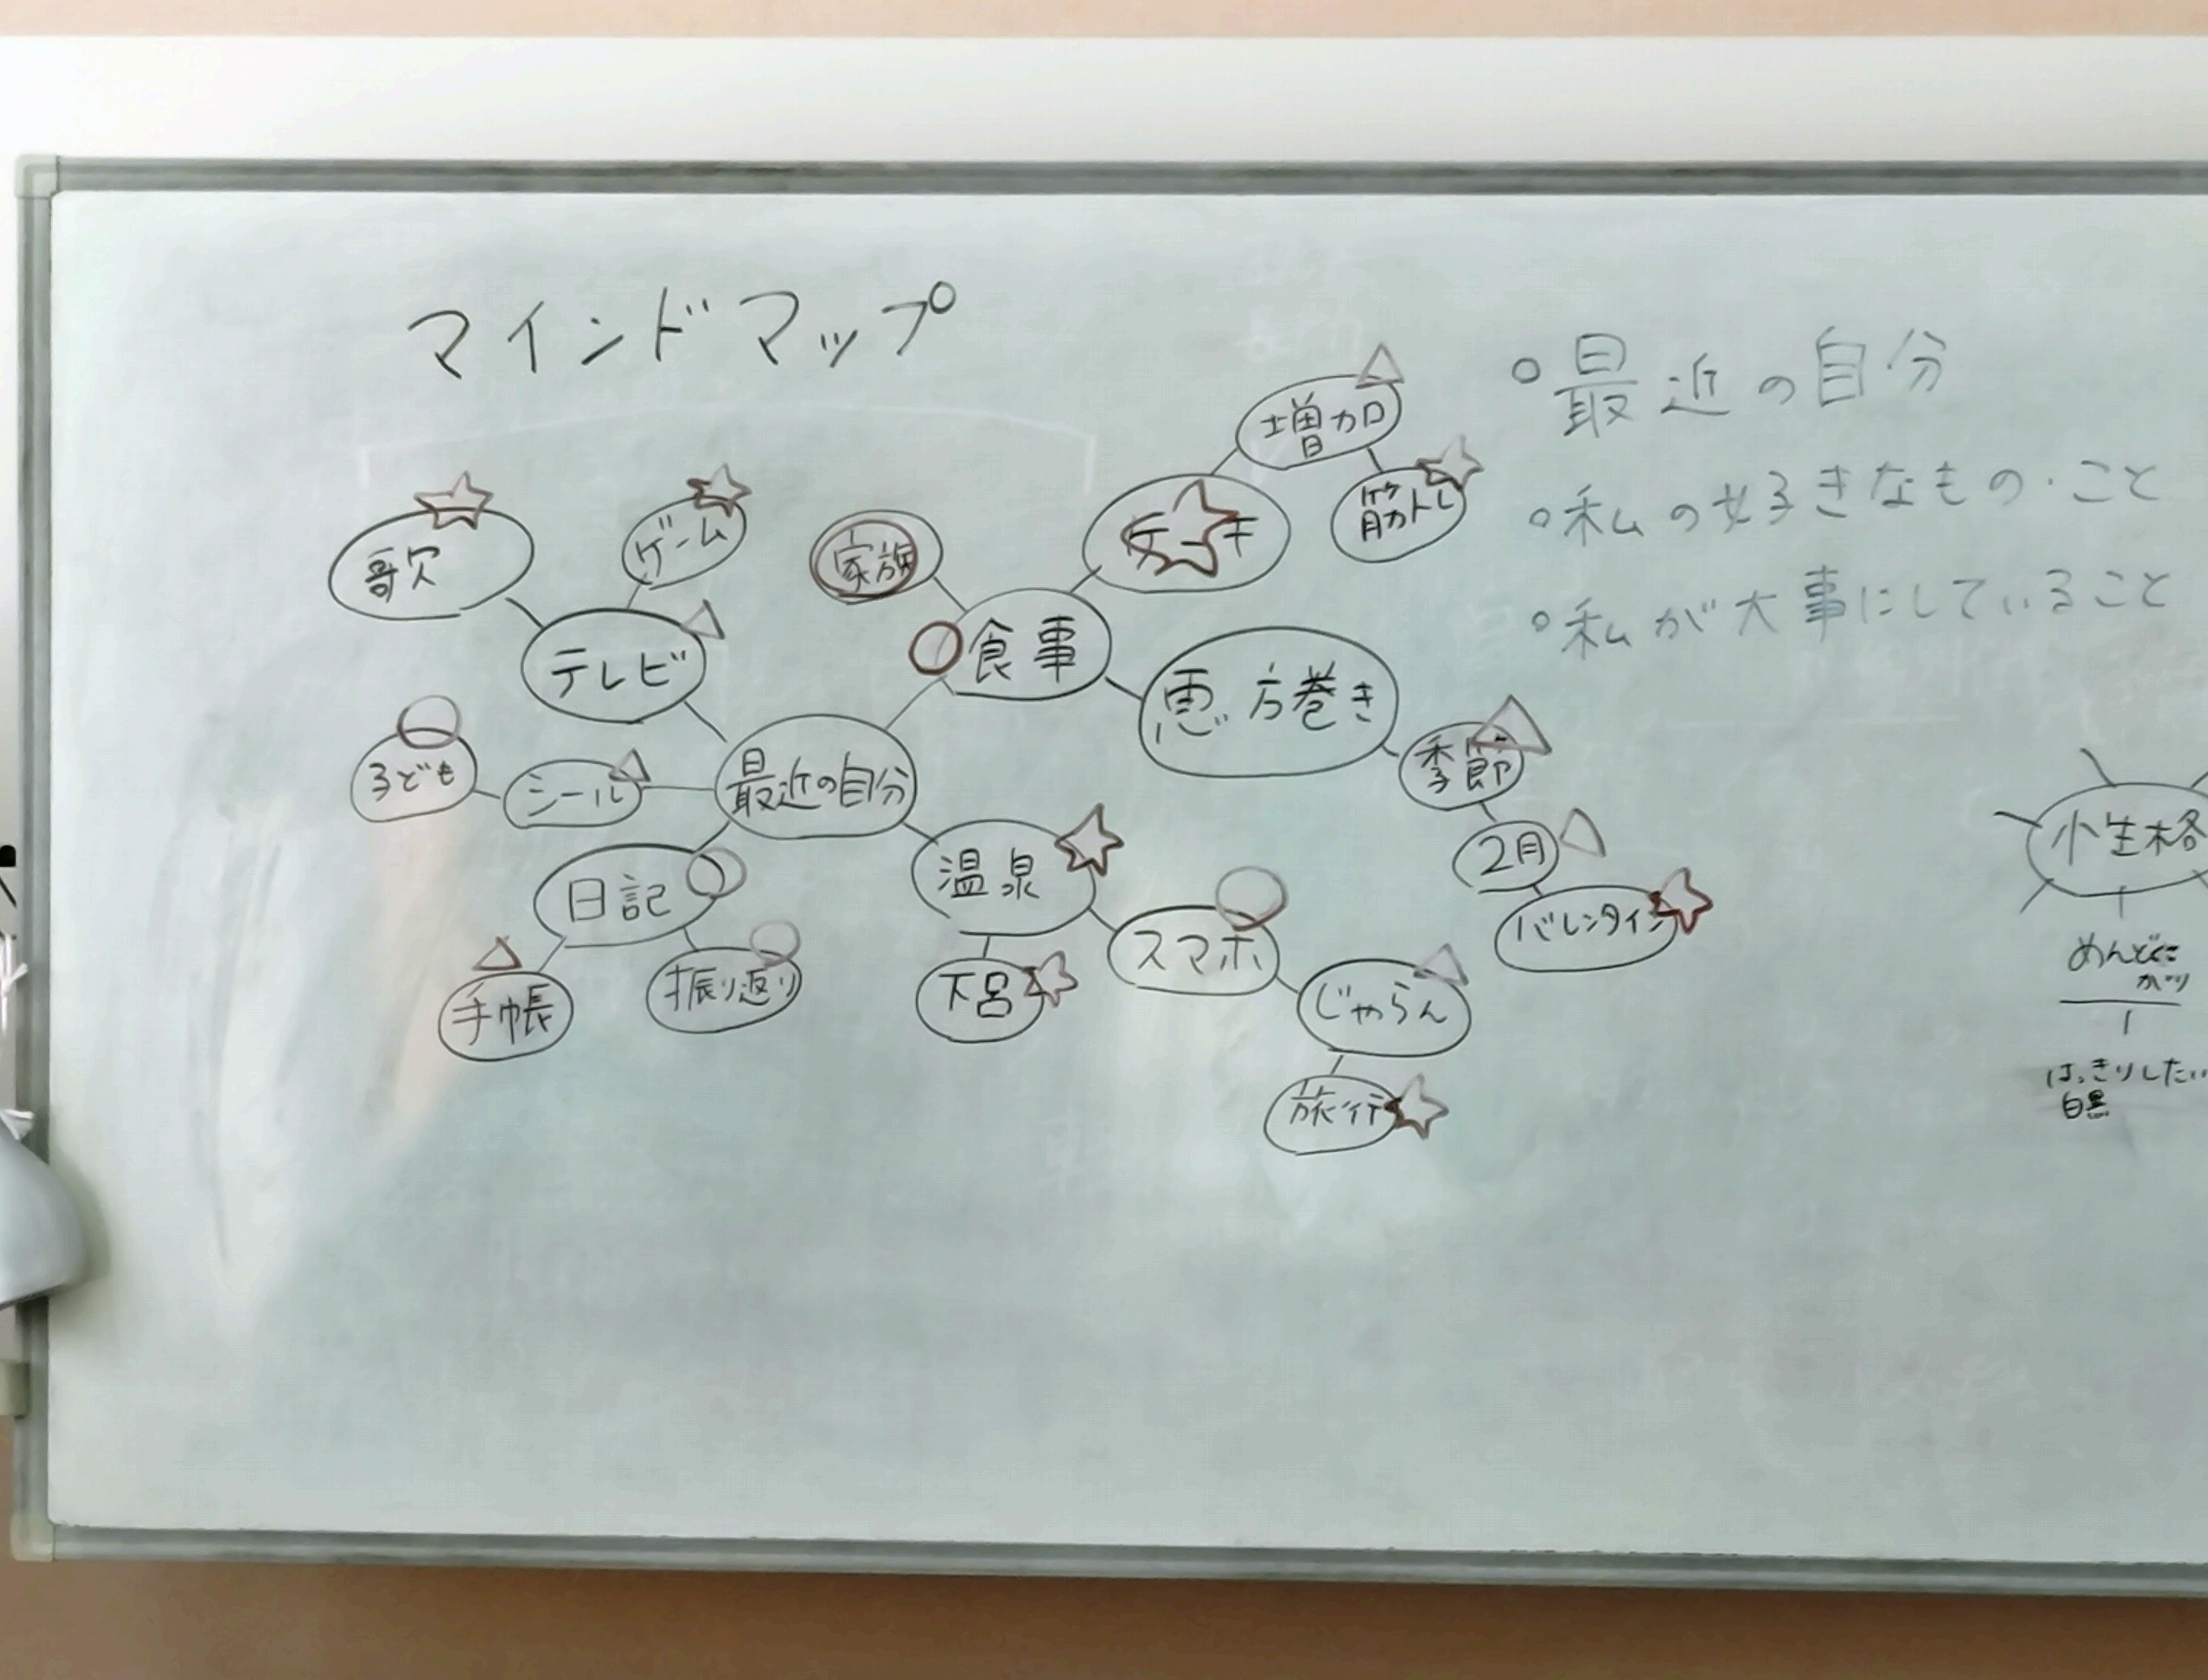 マインドマップ
最近の自分
私の好きなもの・こと
私が大事にしていること
増加
筋トレ
ケーキ
歌
ゲーム
家族
食事
テレビ
恵方巻き
子ども
シール
最近の自分
季節
2月
バレンタイン
日記
温泉
スマホ
手帳
振り返り
下呂
じゃらん
旅行
性格
はっきりしたい
白黒